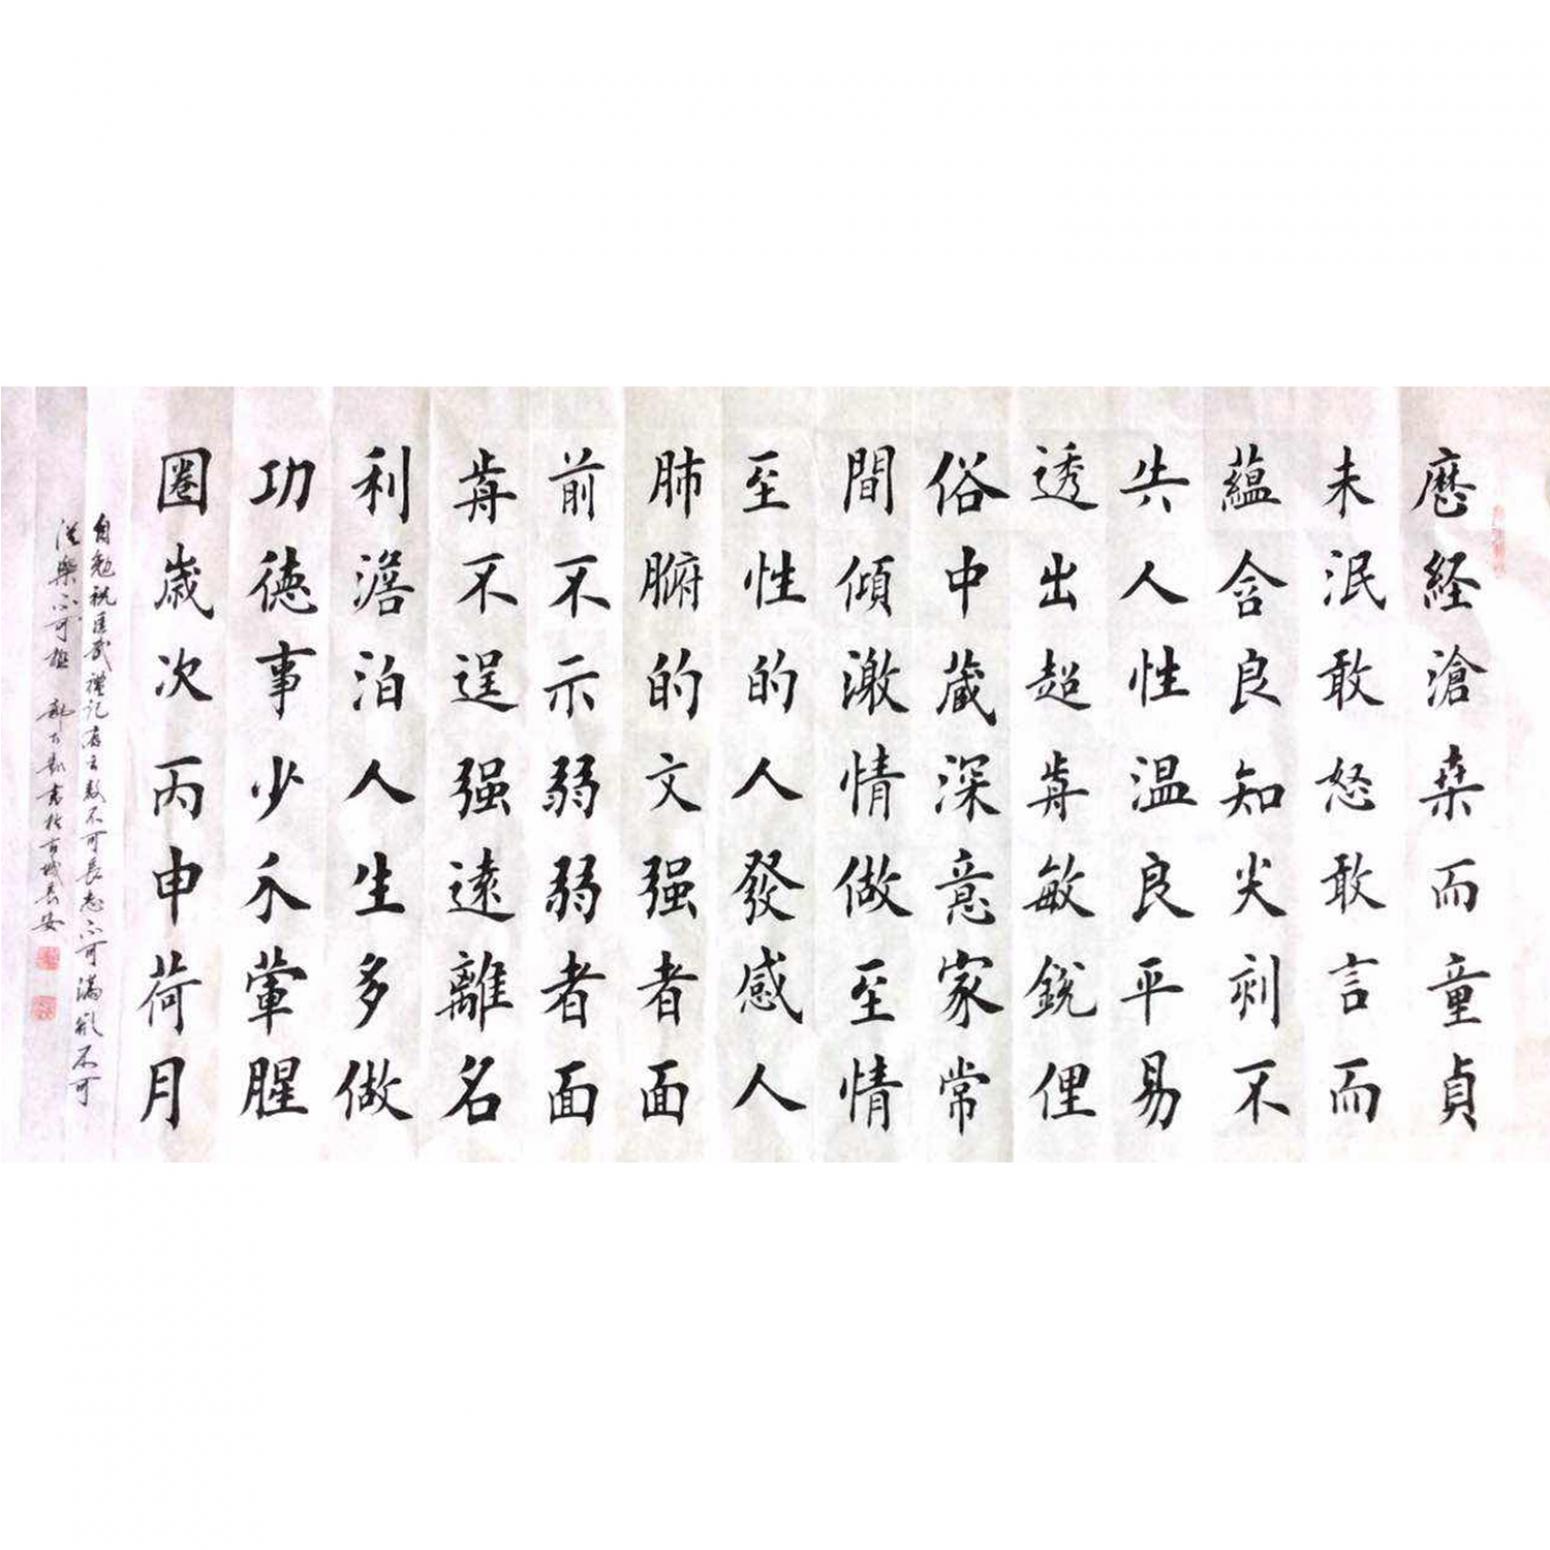 歷経滄桑而童貞
未泯敢怒敢言而
蘊含良知尖刻不
失人性温良平易
透出超常敏銳俚
俗中蔵深意家常
間傾激情做至情
至性的人發感人
肺腑的文强者面
前不示弱弱者面
前不逞强遠離名
利澹泊人生多做
功徳事少介葷腥
圈歲次丙申荷月
自勉祝匡武禮記有云敖不可長志不可滿欲不可
從樂不可極 書於古城長安